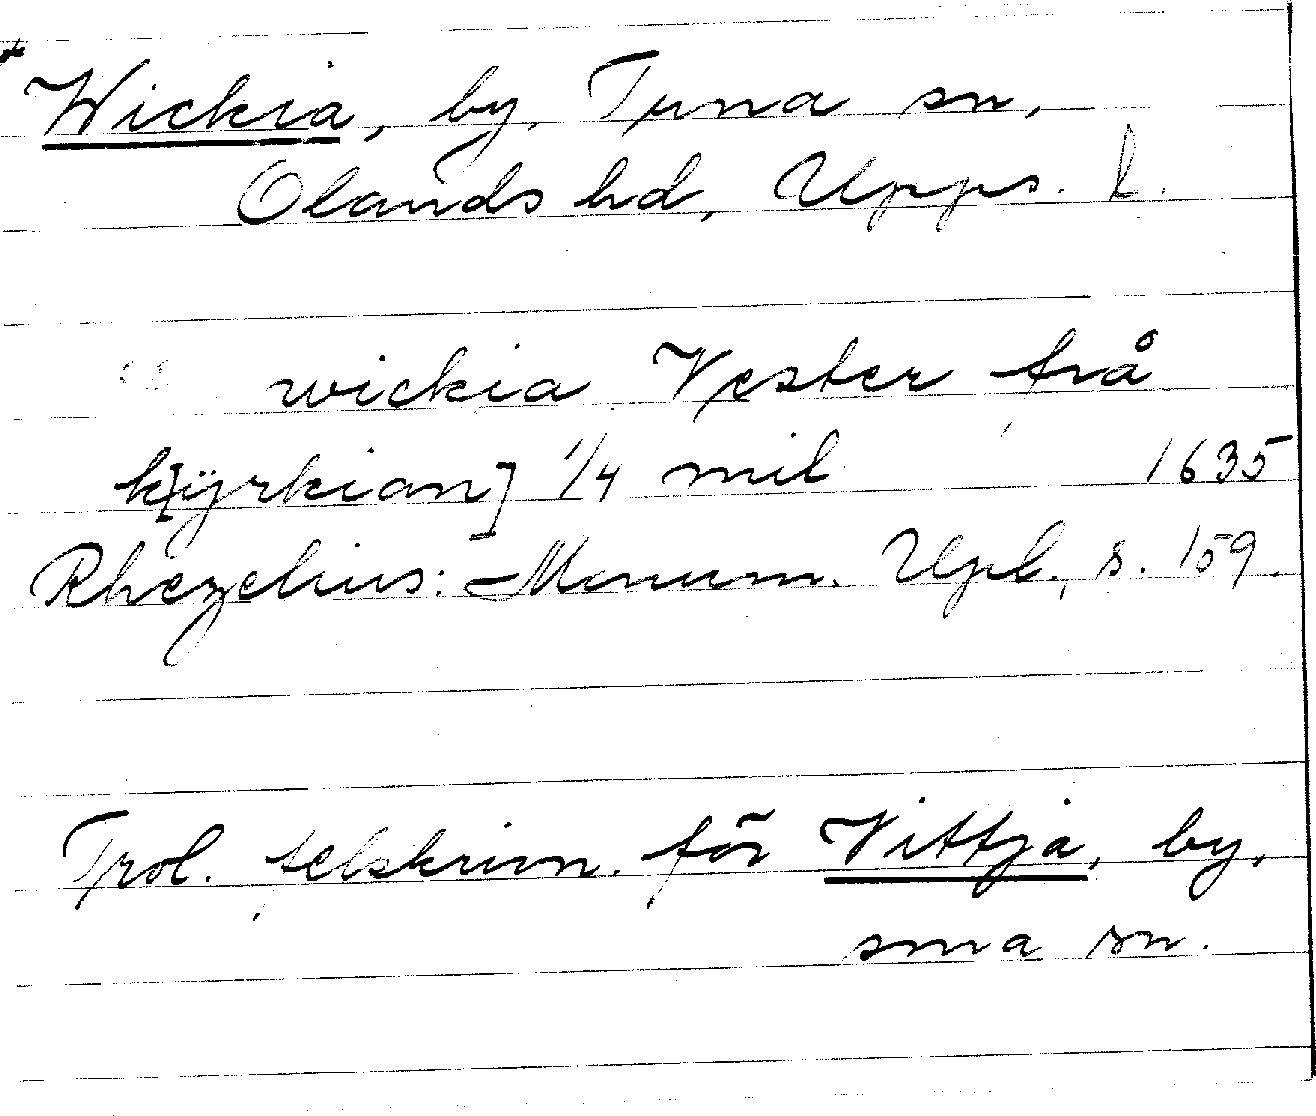 *Wickia, by, Tuna sn,
Olands hd, Upps. l.
wickia Vester frå
k[yrkian] 1/4 mil 1635
Rhezelius: Monum. Upl., s. 159.
Trol. felskrivn. för Vittja, by,
sma sn.